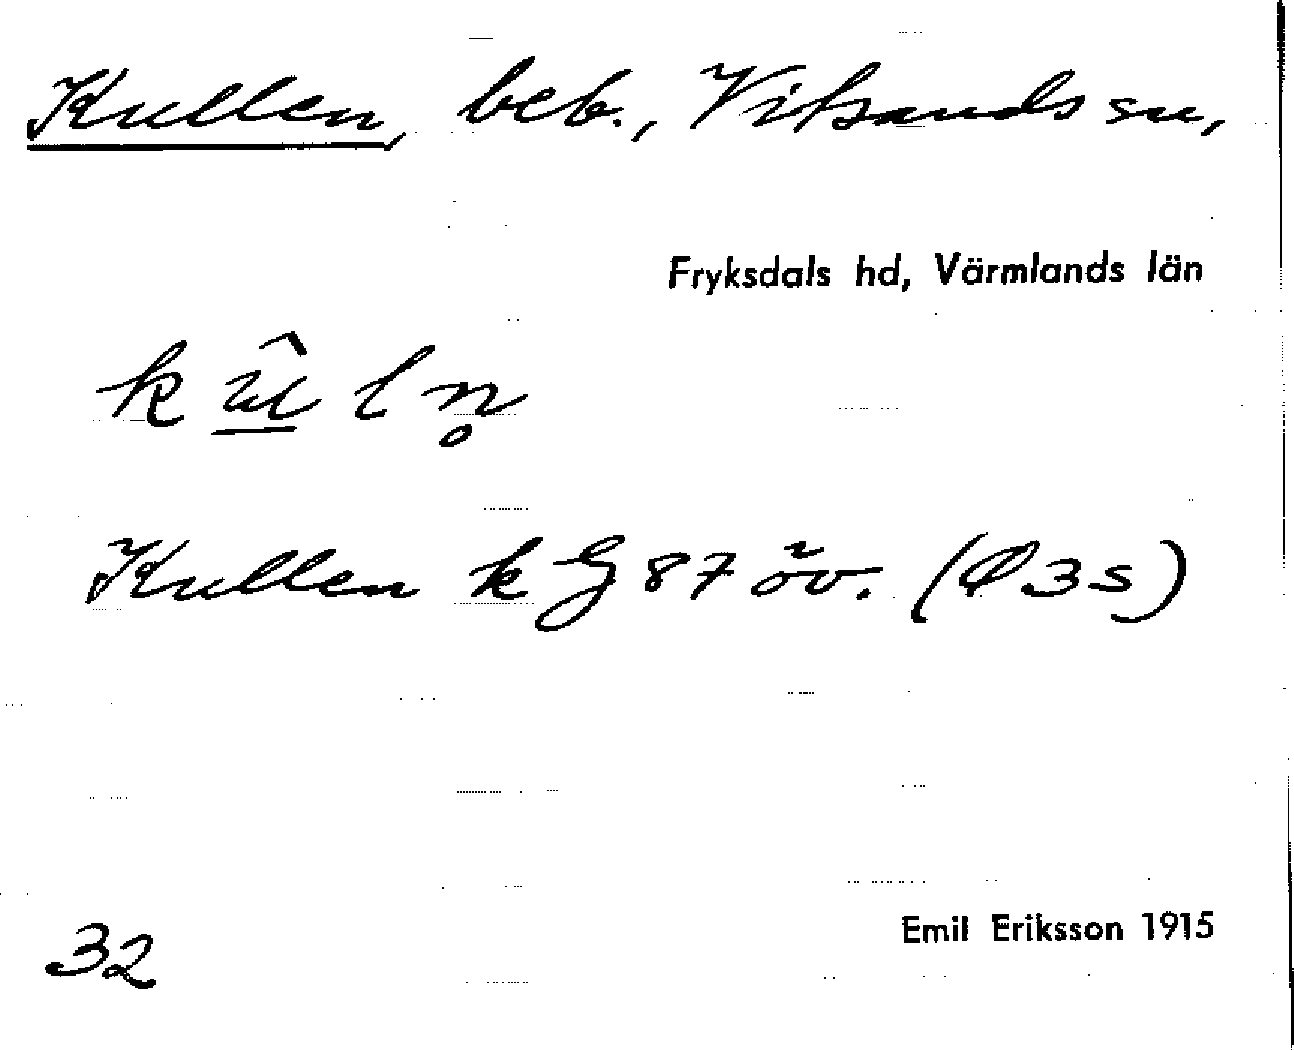 Kullen, beb., Vitsands sn,
Fryksdals hd, Värmlands län
Kullen k G 87 öv. (Ø 3 s)
32
Emil Eriksson 1915